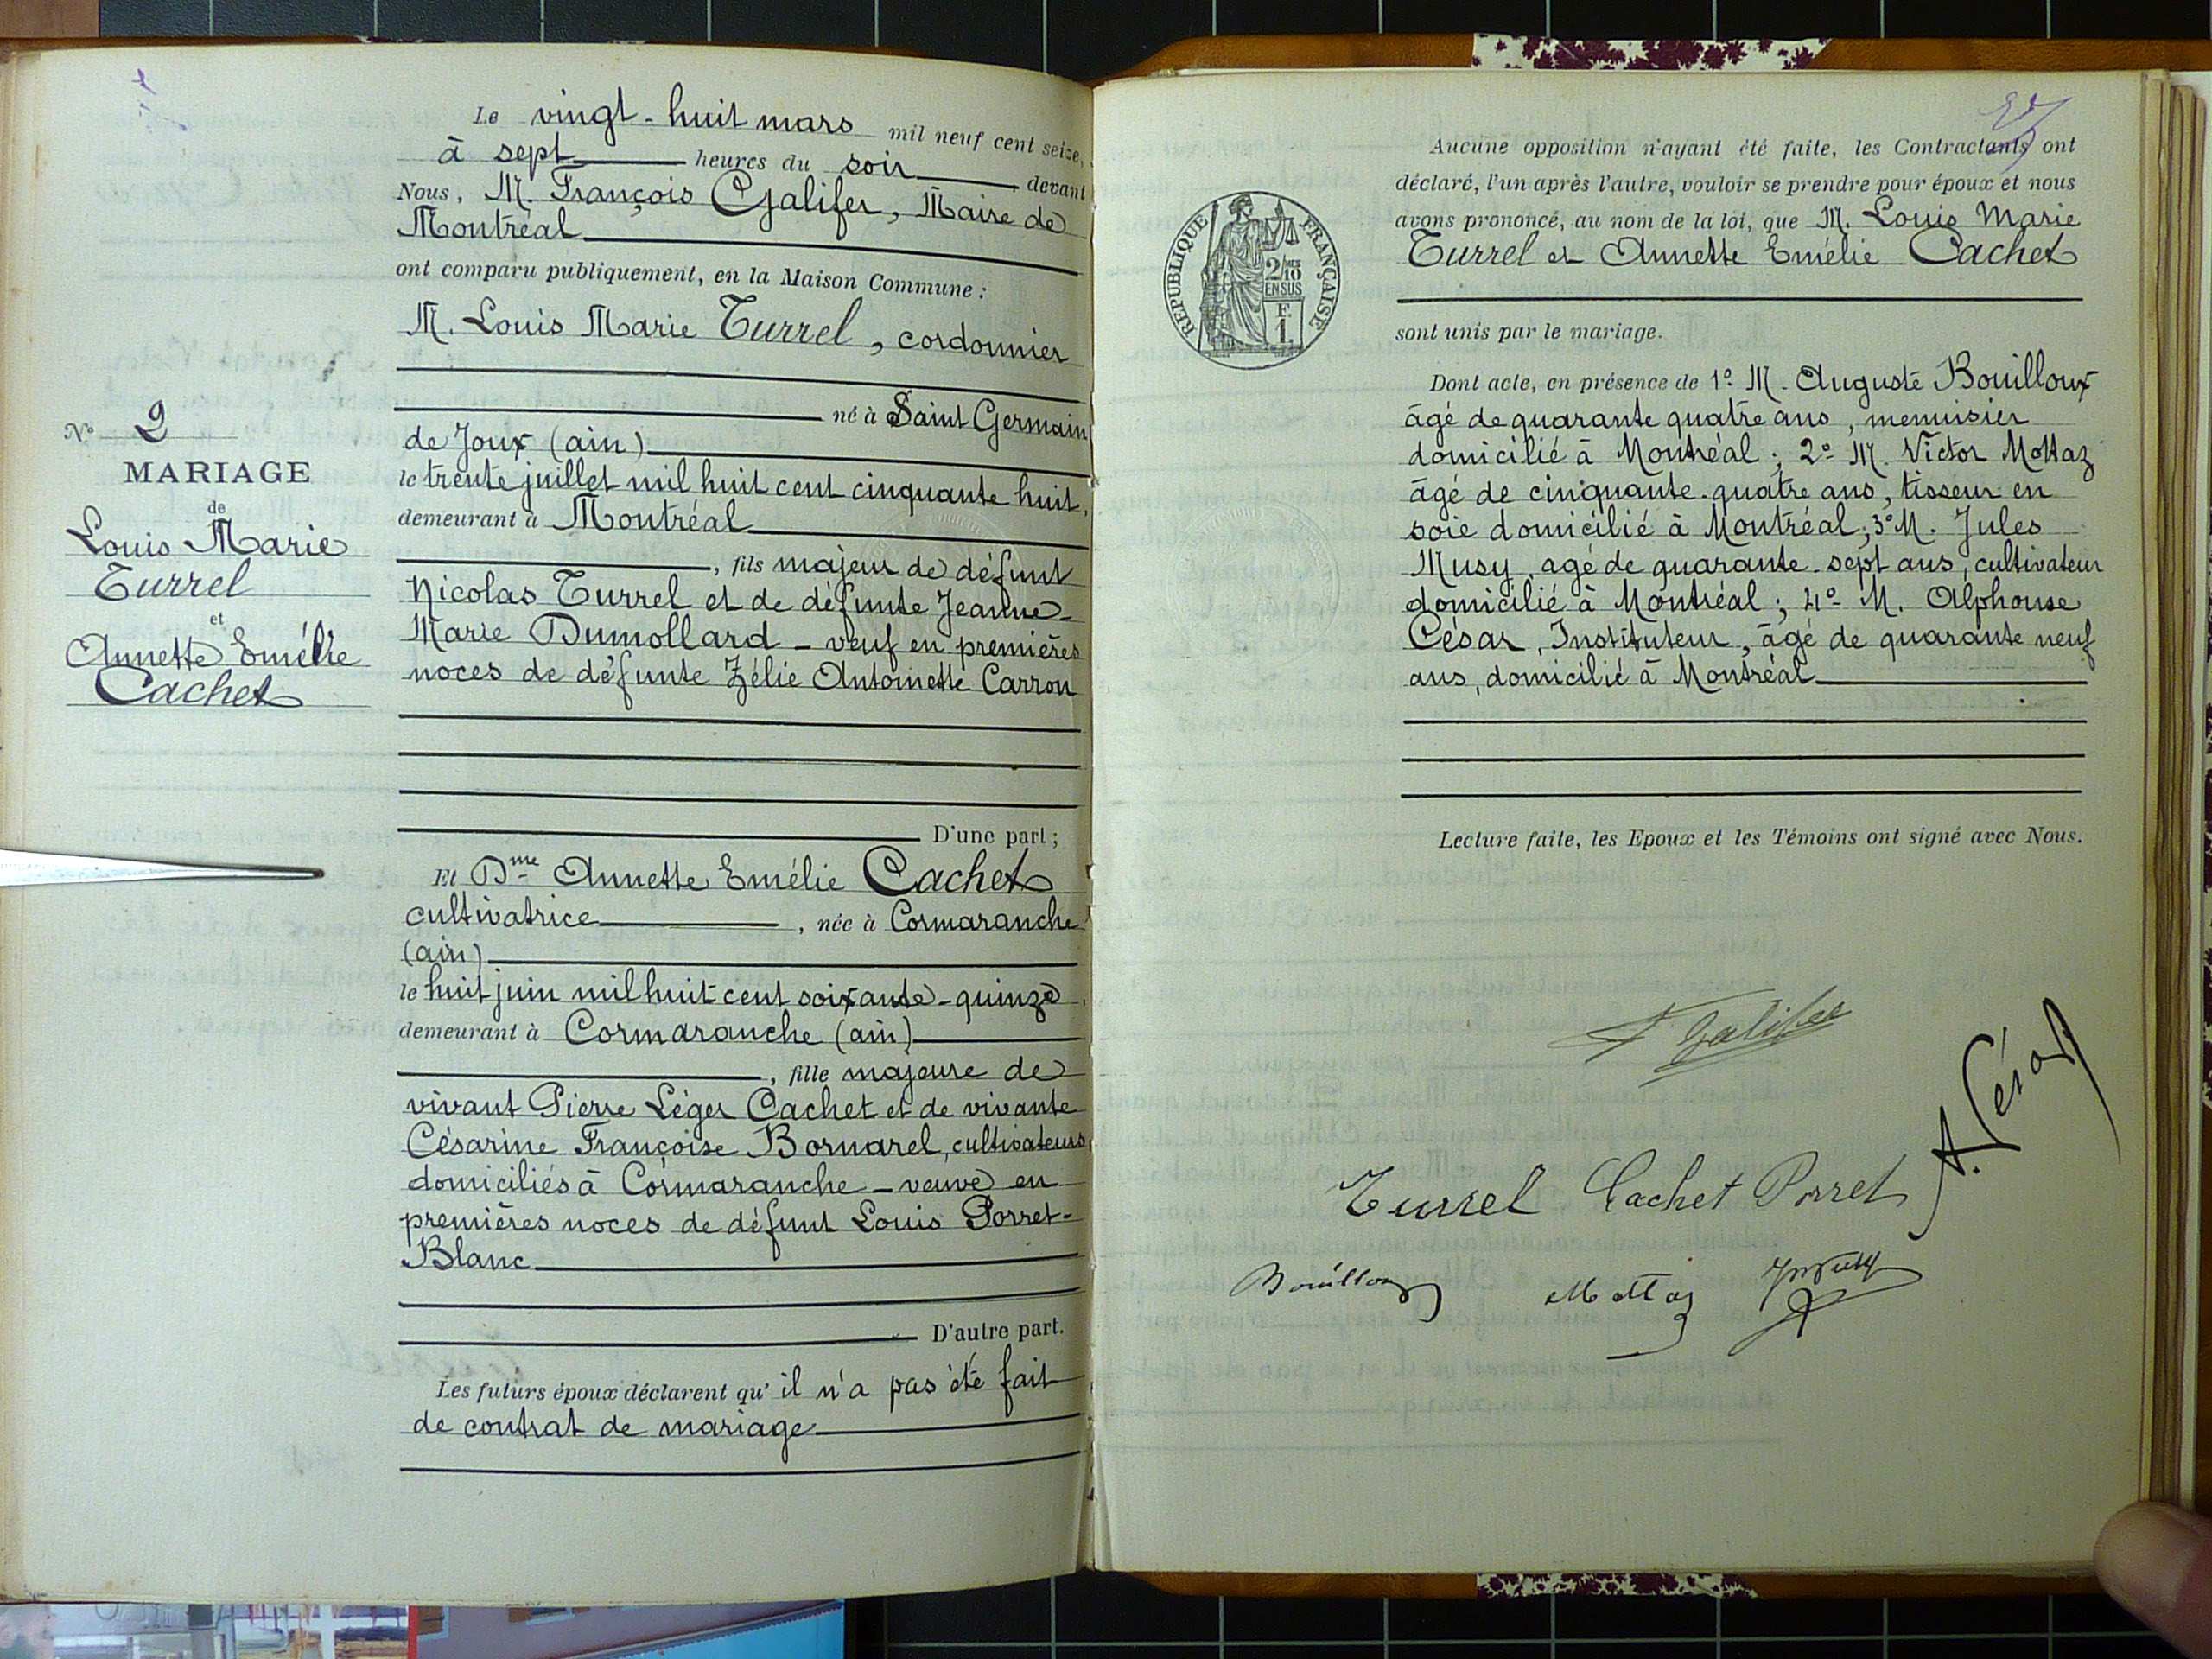 Le vingt-huit mars mil neuf cent seize,
à sept heures du soir, devant
Nous, M. François Galifer, Maire de
Montréal
ont comparu publiquement, en la Maison Commune :
M. Louis Marie Turrel, cordonnier
né à Saint Germain
de Joux (ain)
le trente juillet mil huit cent cinquante huit,
demeurant à Montréal
, fils majeur de défunt
Nicolas Turrel et de défunte Jeanne-
Marie Dumollard - veuf en premières
noces de défunte Zélie Antoinette Carron
D'une part ;
Nº 2
MARIAGE
de
Louis Marie
Turrel
et
Annette Emélie
Cachet
Et Dme Annette Emélie Cachet
cultivatrice, née à Cormaranche
(ain)
le huit juin mil huit cent soixante-quinze,
demeurant à Cormaranche (ain)
, fille majeure de
vivant Pierre Léger Cachet et de vivante
Césarine Françoise Bornarel, cultivateurs,
domiciliés à Cormaranche - veuve en
premières noces de défunt Louis Porret-
Blanc
D'autre part.
Les futurs époux déclarent qu'il n'a pas été fait
de contrat de mariage
Aucune opposition n'ayant été faite, les Contractants ont
déclaré, l'un après l'autre, vouloir se prendre pour époux et nous
avons prononcé, au nom de la loi, que M. Louis Marie
Turrel et Annette Emélie Cachet
sont unis par le mariage.
RÉPUBLIQUE FRANÇAISE
2/10
EN SUS
F.
1.
Dont acte, en présence de 1º M. Auguste Bouilloux
âgé de quarante quatre ans, menuisier
domicilié à Montréal ; 2º M. Victor Mottaz
âgé de cinquante-quatre ans, tisseur en
soie domicilié à Montréal ; 3º M. Jules
Musy, agé de quarante-sept ans, cultivateur
domicilié à Montréal ; 4º M. Alphonse
César, Instituteur, âgé de quarante neuf
ans, domicilié à Montréal
Lecture faite, les Epoux et les Témoins ont signé avec Nous.
F Galifer
A. César
Turrel Cachet Porret
Bouilloux Mottaz JMusy